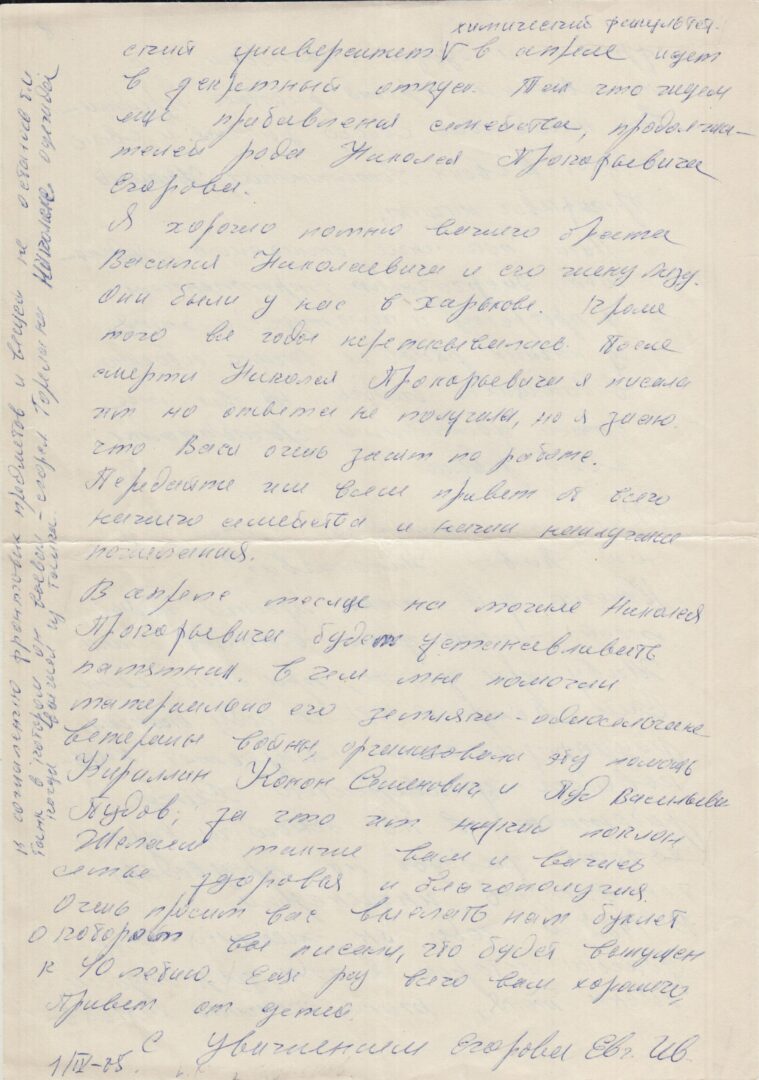 химический факультет.
ский университет V в апреле идет
в декретный отпуск. Так что ждем
еще прибавления семейства, продолжа-
телей рода Николая Прокорьевича
Егорова.
Я хорошо помню вашего брата
Василия Николаевича и его жену Лизу.
Они были у нас в Харькове. Кроме
того все годы переписывались. После
смерти Николая Прокорьевича я писала
им но ответа не получила, но я знаю
что Вася очень занят по работе.
Передайте им всем привет от всего
нашего семейства и наши наилучшие
пожелания.
В апреле месяце на могиле Николая
Прокорьевича будем устанавливать
памятник. В чем мне помогли
материально его земляки-односельчане
ветераны войны, организовали эту помощь
Кириллин Конон Семенович и Пуд Васильевич
Пудов, за что им низкий поклон
Желаем также вам и вашей
семье здоровья и благополучия.
Очень просим вас выслать нам буклет
о котором вы писали, что будет выпущен
к 40 летию. Еще раз всего вам хорошего,
Привет от детей.
С уважением Егорова Евг. Ив.
1/IV-85.
К сожалению фронтовых предметов и вещей не осталось б..
танк в котором он воевал - сгорел. Горела на Николае одежда
когда выполз из танка.